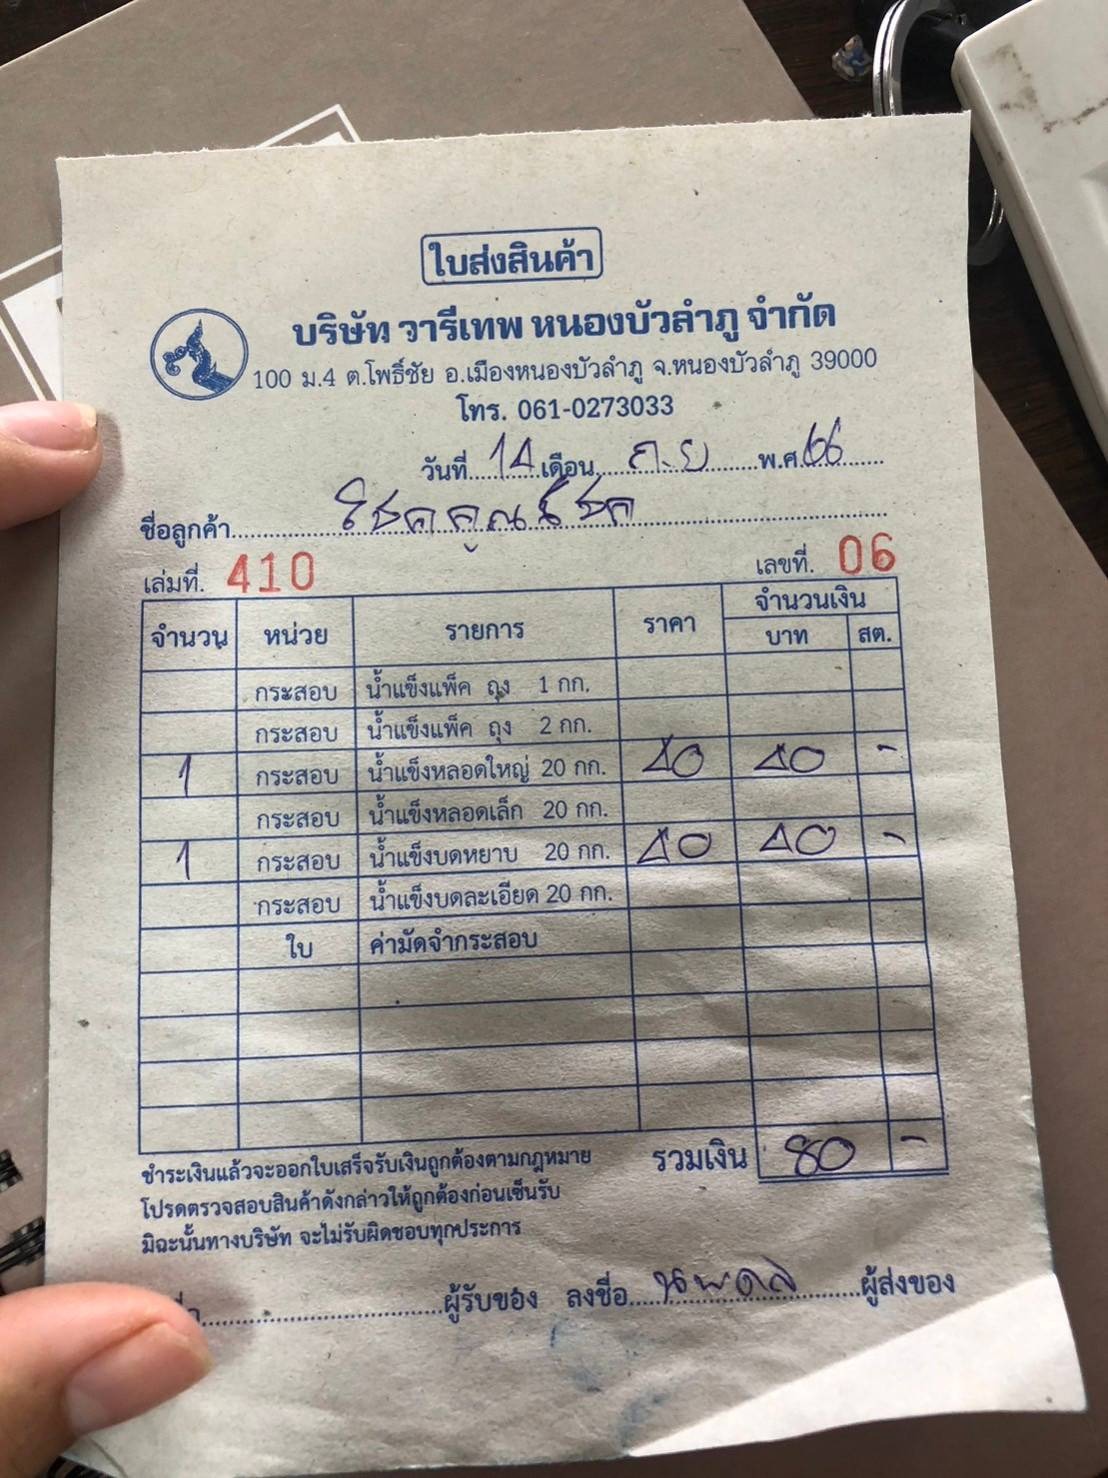 ใบส่งสินค้า
บริษัท วารีเทพ หนองบัวลำภู จำกัด
100 ม.4 ต.โพธิ์ชัย อ.เมืองหนองบัวลำภู จ.หนองบัวลำภู 39000
โทร. 061-0273033
วันที่ 14 เดือน ก.ย พ.ศ. 66
ชื่อลูกค้า โชคคูณโชค
เล่มที่. 410 เลขที่. 06
จำนวน หน่วย รายการ ราคา จำนวนเงิน
บาท สต.
กระสอบ น้ำแข็งแพ็ค ถุง 1 กก.
กระสอบ น้ำแข็งแพ็ค ถุง 2 กก.
1 กระสอบ น้ำแข็งหลอดใหญ่ 20 กก. 40 40 -
กระสอบ น้ำแข็งหลอดเล็ก 20 กก.
1 กระสอบ น้ำแข็งบดหยาบ 20 กก. 40 40 -
กระสอบ น้ำแข็งบดละเอียด 20 กก.
ใบ ค่ามัดจำกระสอบ
รวมเงิน 80 -
ชำระเงินแล้วจะออกใบเสร็จรับเงินถูกต้องตามกฎหมาย
โปรดตรวจสอบสินค้าดังกล่าวให้ถูกต้องก่อนเซ็นรับ
มิฉะนั้นทางบริษัท จะไม่รับผิดชอบทุกประการ
ผู้รับของ ลงชื่อ นพดล ผู้ส่งของ